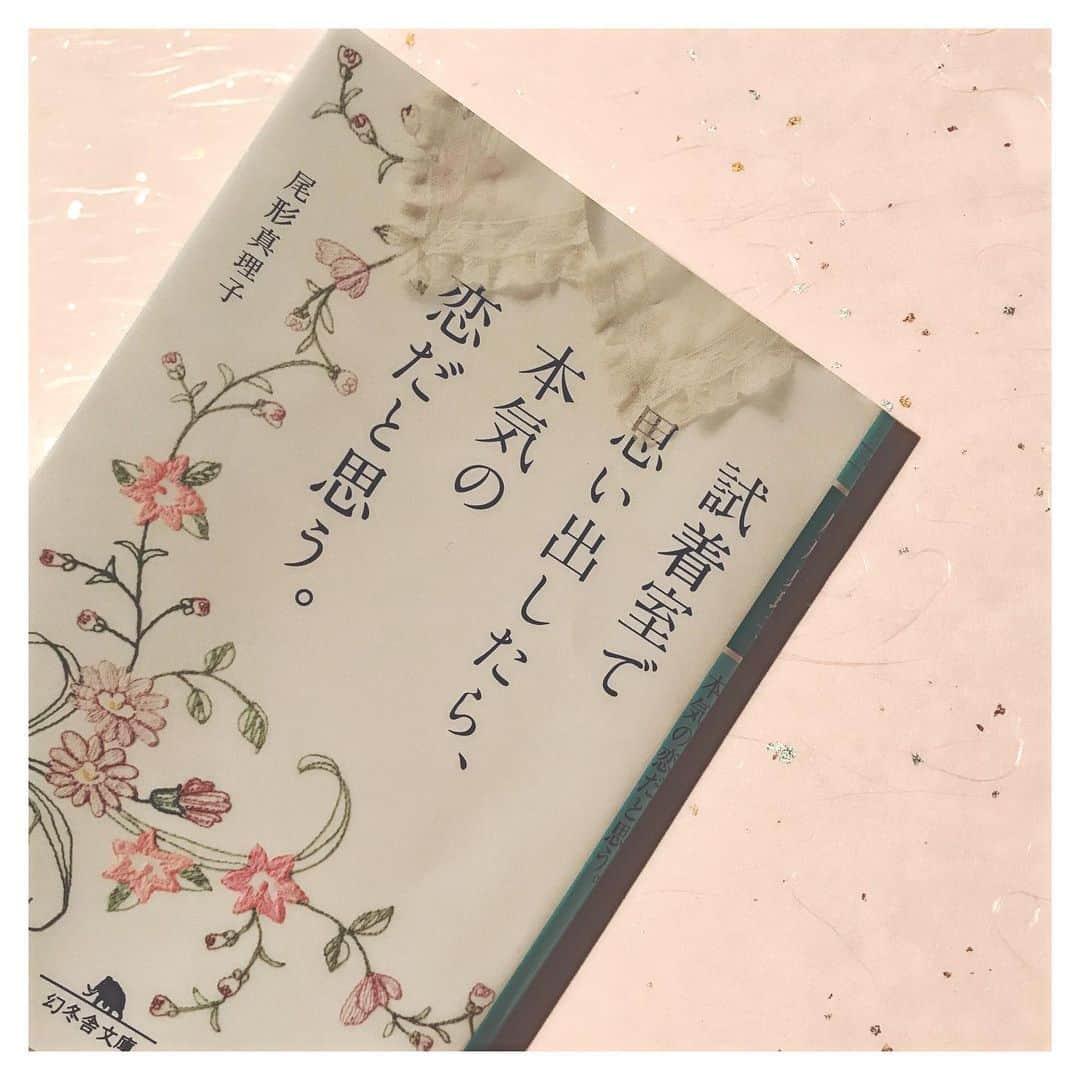 試着室で
思い出したら、
本気の
恋だと思う。
尾形真理子
幻冬舎文庫
本気の恋だと思う。